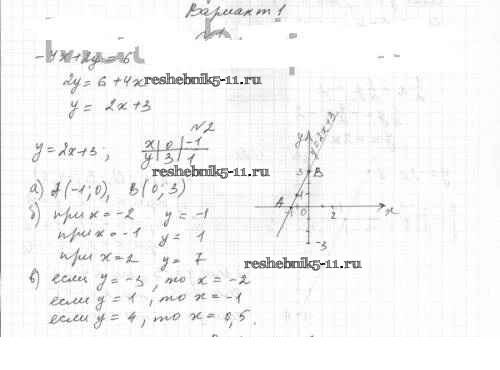 Вариант 1
№1.
-4x+2y=6
2y=6+4x
reshebnik5-11.ru
y=2x+3
№2
y=2x+3;
x 0 -1
y 3 1
а) A(-1;0), B(0;3)
б) при x=-2 y=-1
при x=-1 y=1
при x=2 y=7
в) если y=-3, то x=-2
если y=1, то x=-1
если y=4, то x=0,5.
y
y=2x+3
3 B
A
-1 0 2 x
-3
reshebnik5-11.ru